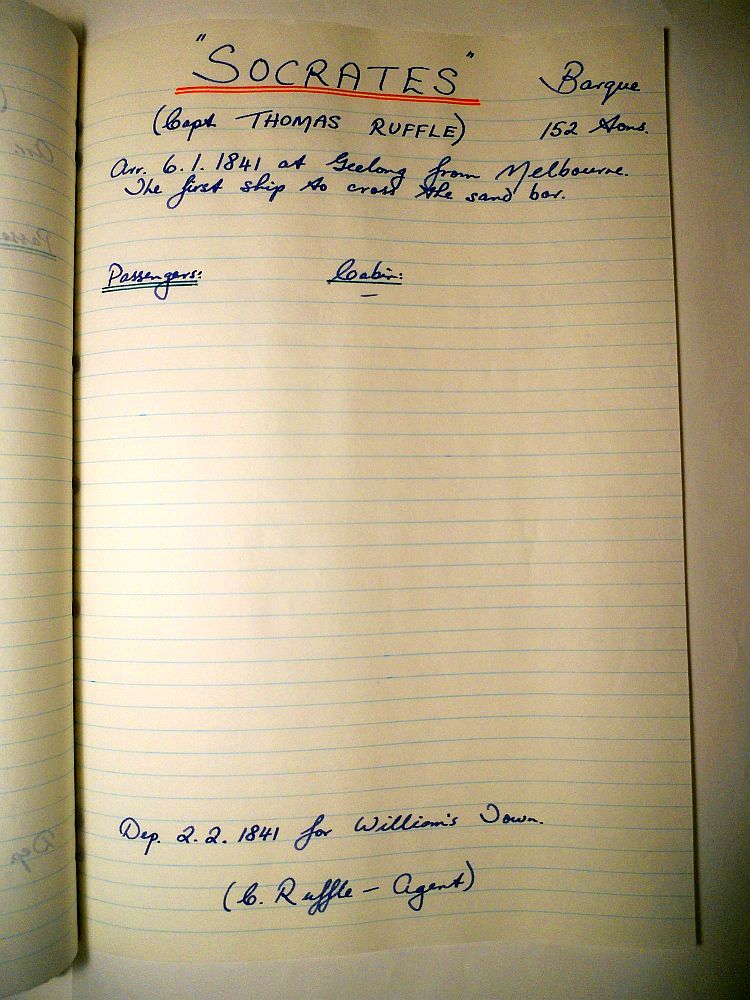 "SOCRATES" Barque
(Capt THOMAS RUFFLE) 152 tons.
Arr. 6.1.1841 at Geelong from Melbourne.
The first ship to cross the sand bar.
Passengers: Cabin:
—
Dep. 2.2.1841 for William's Town.
(C. Ruffle - Agent)